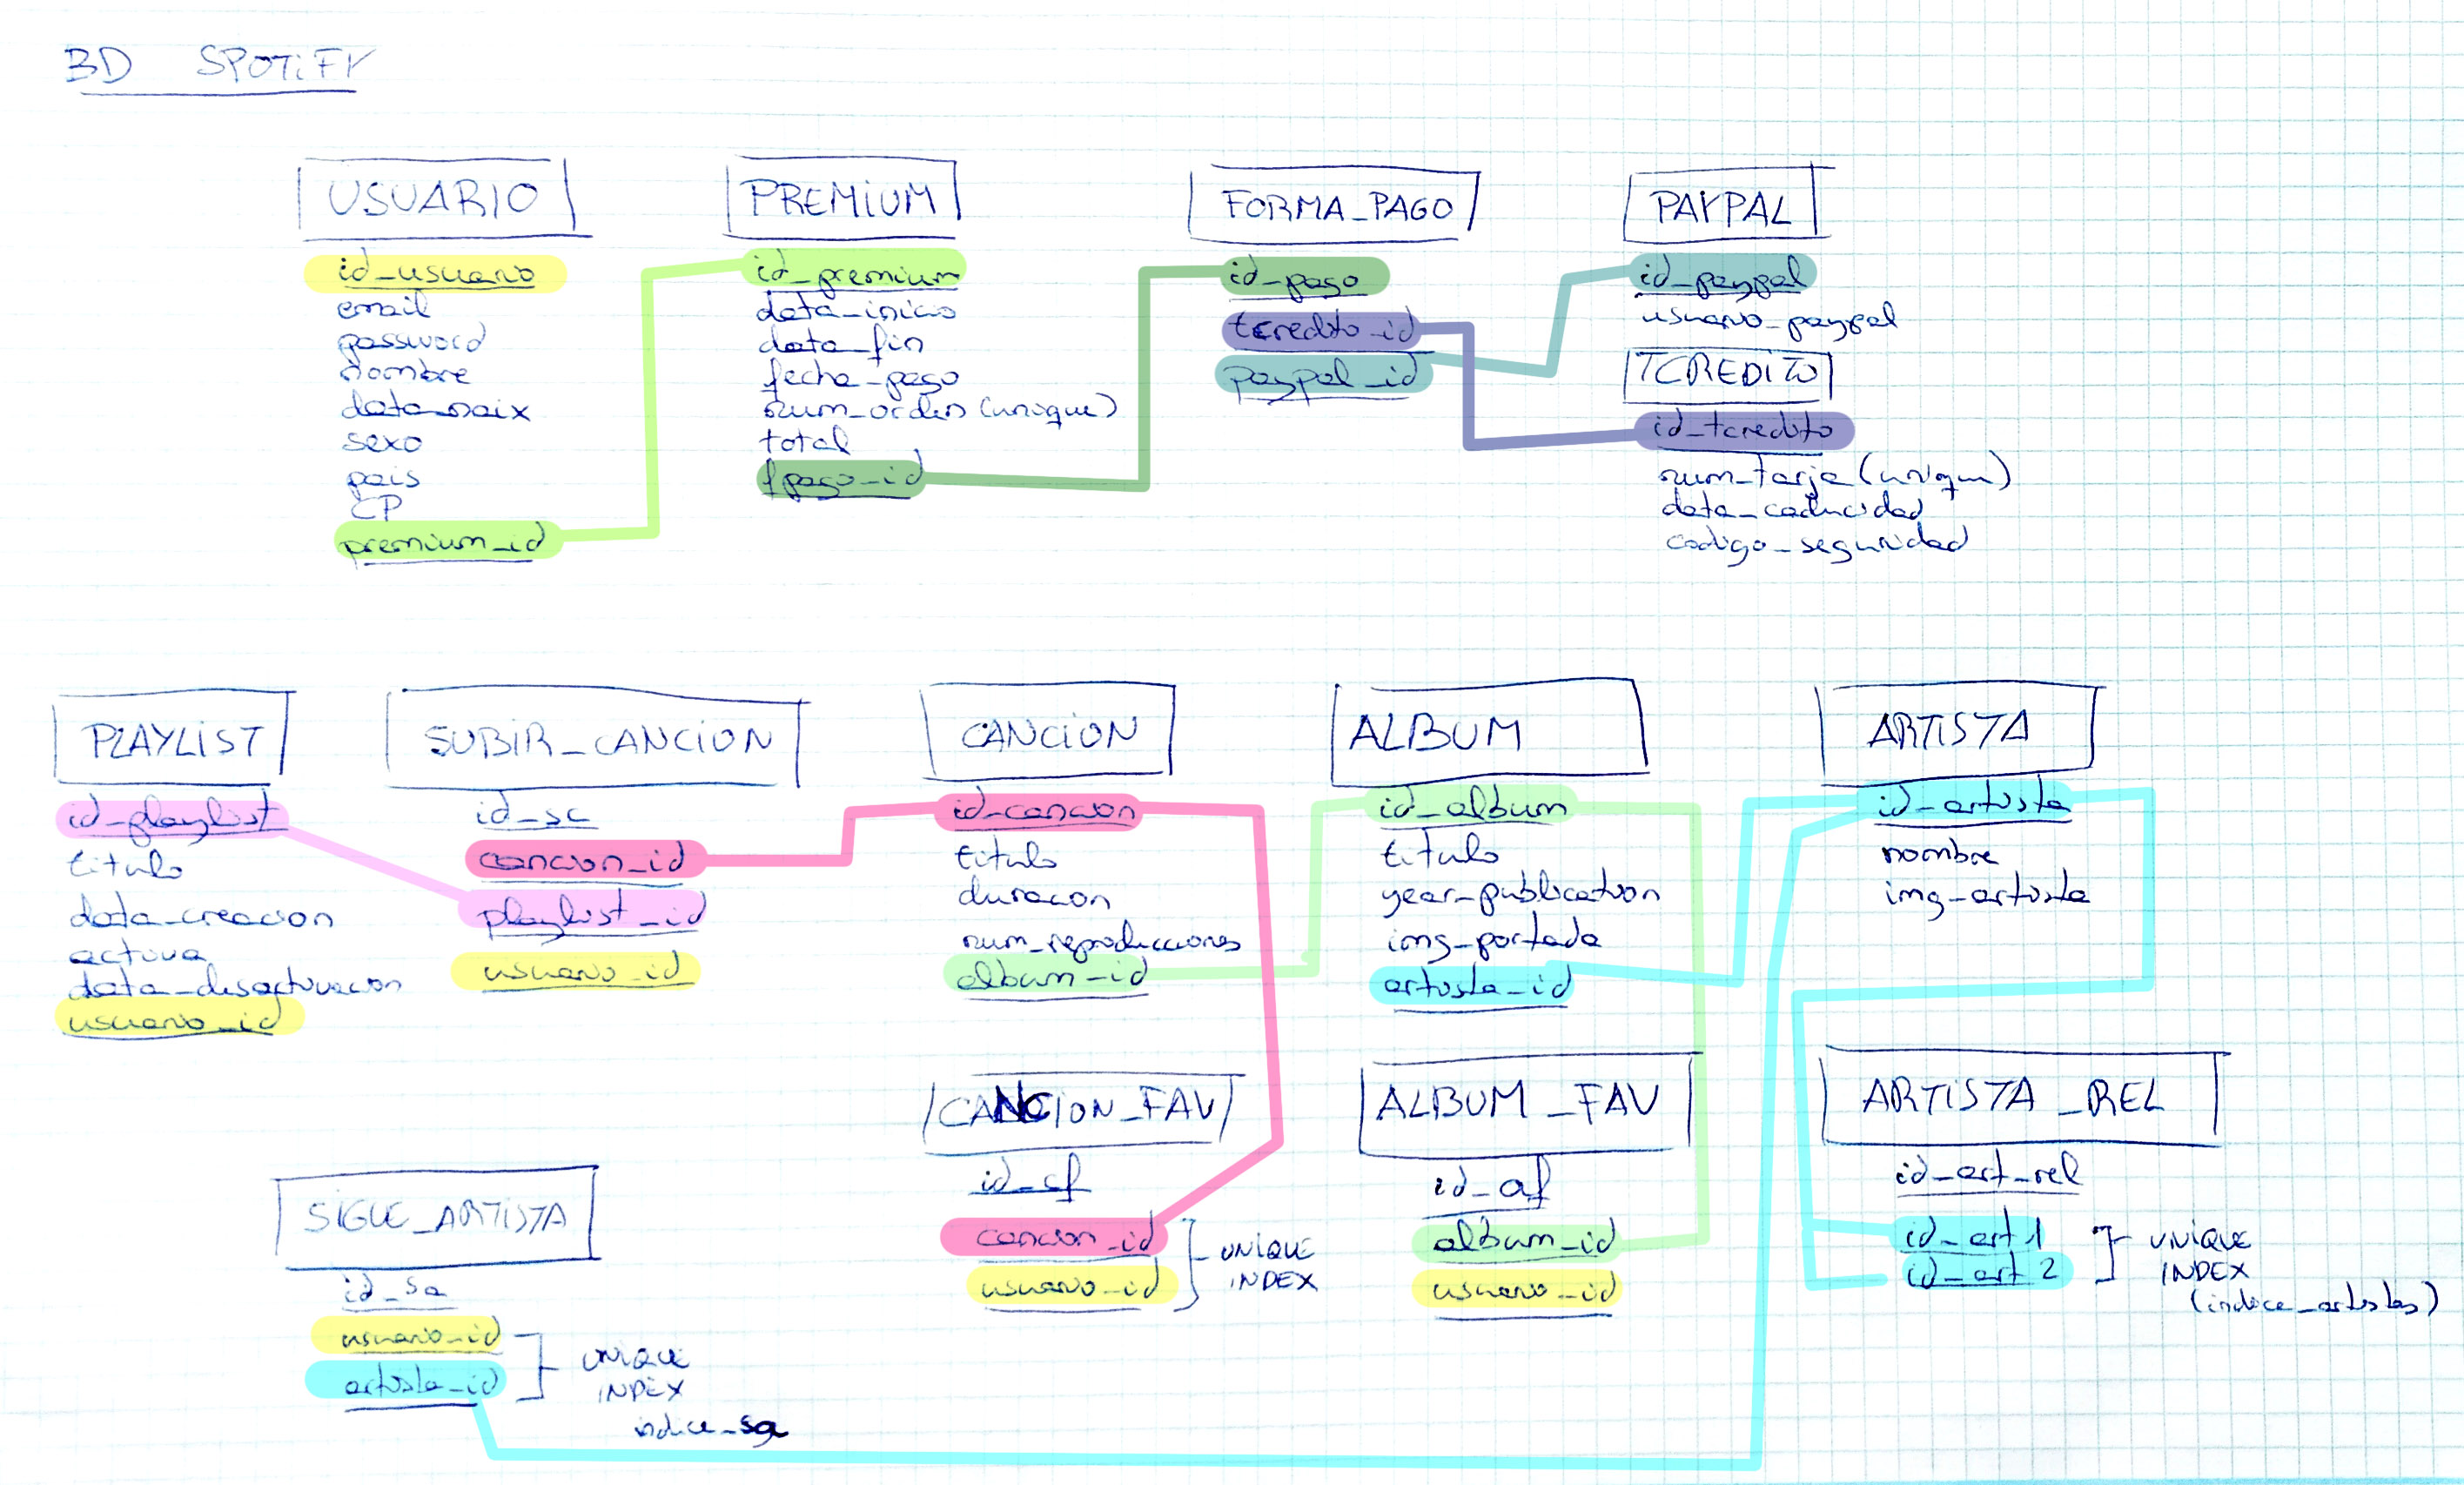 BD SPOTiFY
USUARIO
id_usuario
email
password
nombre
data_naix
sexo
pais
CP
premium_id
PREMiUM
id_premium
data_inicio
data_fin
fecha_pago
num_orden (unique)
total
fpago_id
FORMA_PAGO
id_pago
tcredito_id
paypal_id
PAYPAL
id_paypal
usuario_paypal
TCREDiTO
id_tcredito
num_tarje (unique)
data_caducidad
codigo_seguridad
PLAYLiST
id_playlist
titulo
data_creacion
activa
data_desactivacion
usuario_id
SUBiR_CANCiON
id_sc
cancion_id
playlist_id
usuario_id
CANCiON
id_cancion
titulo
duracion
num_reproducciones
album_id
ALBUM
id_album
titulo
year_publication
img_portada
artista_id
ARTiSTA
id_artista
nombre
img_artista
SiGUE_ARTiSTA
id_sa
usuario_id
artista_id
UNiQUE
iNDEX
indice_sa
CANCiON_FAV
id_cf
cancion_id
usuario_id
UNiQUE
iNDEX
ALBUM_FAV
id_af
album_id
usuario_id
ARTiSTA_REL
id_art_rel
id_art1
id_art2
UNiQUE
iNDEX
(indice_artistas)